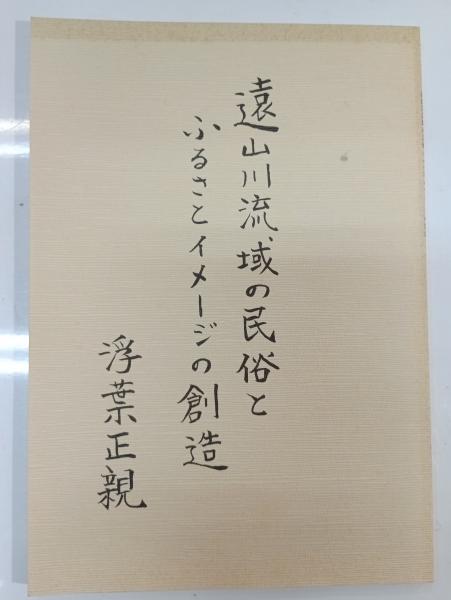 遠山川流域の民俗と
ふるさとイメージの創造
浮葉正親